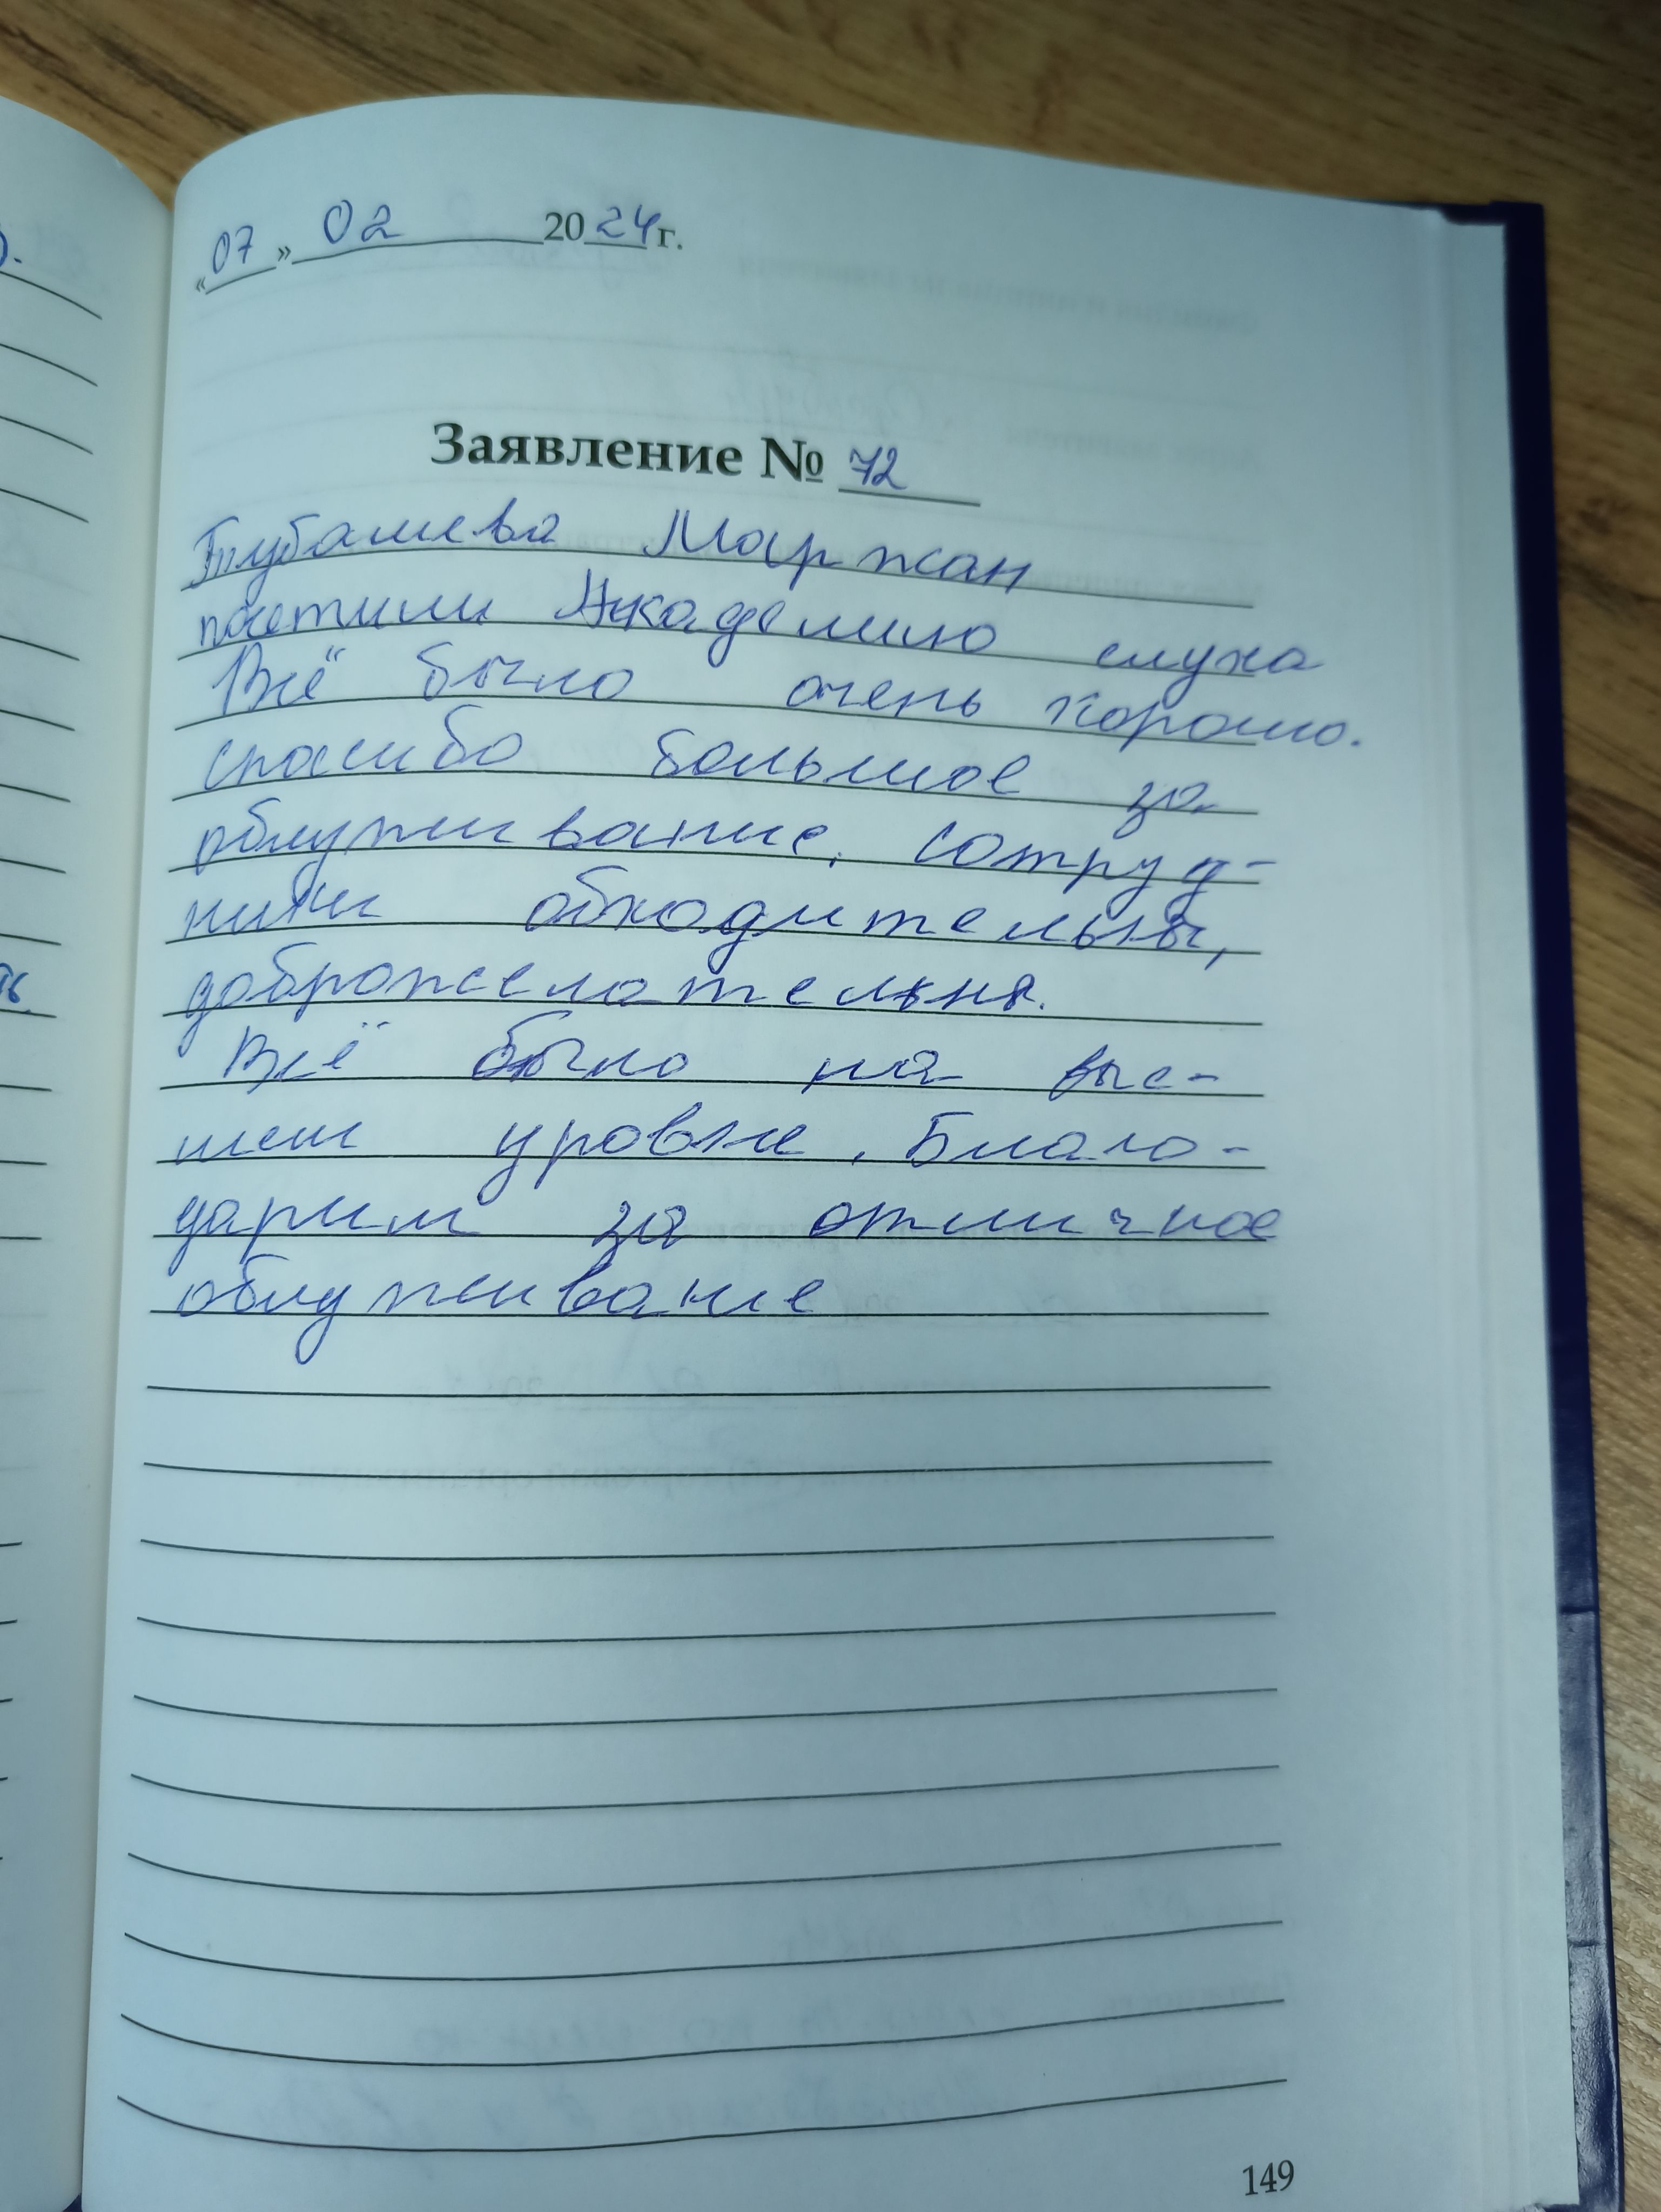 «07» 02 2024г.
Заявление № 72
Тубашева Маржан
посетили Академию слуха
Всё было очень хорошо.
спасибо большое за
облуживание, сотруд-
ники обходительны,
доброжелательны.
Всё было на выс-
шем уровне. Благо-
дарим за отличное
облуживание
149